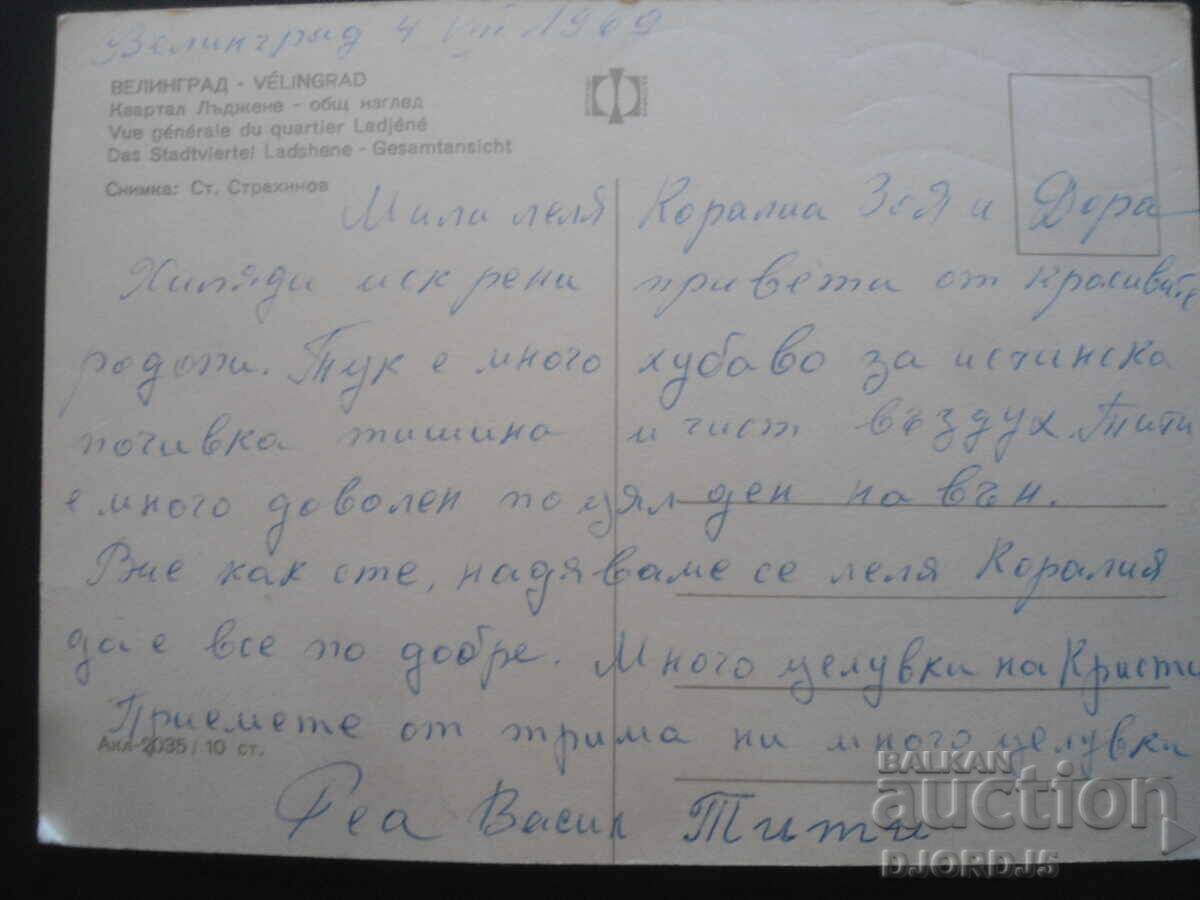 Велинград 4 VIII 1969
ВЕЛИНГРАД - VÉLINGRAD
Квартал Лъджене - общ изглед
Vue générale du quartier Ladjéné
Das Stadtviertel Ladshene - Gesamtansicht
Снимка: Ст. Страхинов
Мили леля Коралиа Зоя и Дора
Хиляди искрени привети от красивите
родопи. Тук е много хубаво за истинска
почивка тишина и чист въздух. Тити
е много доволен по цял ден на вън.
Вие как сте, надяваме се леля Коралия
да е все по добре. Много целувки на Кристи
Приемете от трима ни много целувки
Акл-2035 / 10 ст.
Реа Васил Тити
BALKAN
auction
DJORDJ5